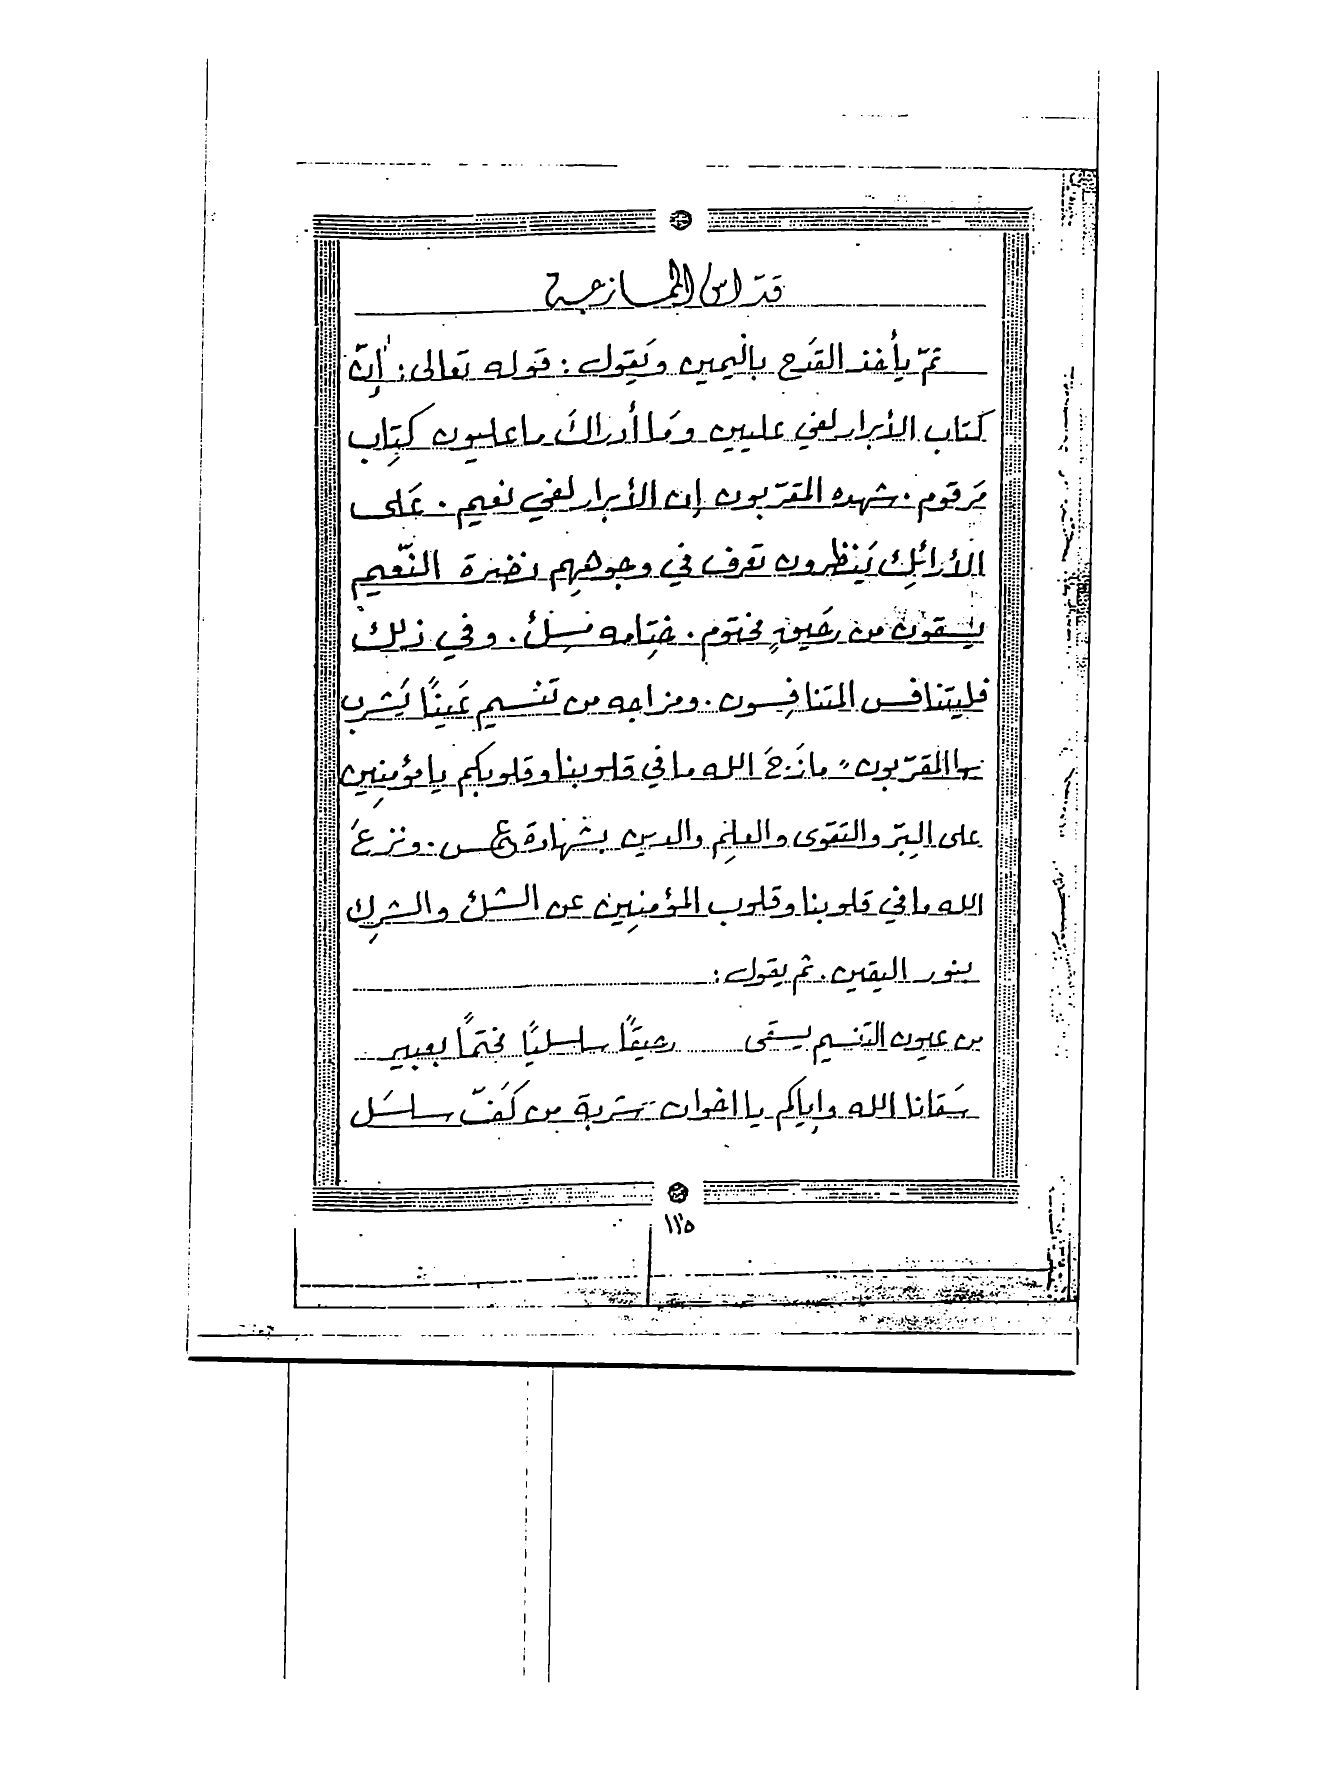 قدّاس الممازجة
ثمّ يأخذ القدَح باليمين وَيَقول : قَوله تَعالى : إنّ
كتاب الأبرار لفي عليين وَمَا أدراكَ ما عليون كِتاب
مَرقوم . شهده المقرّبون إن الأبرار لفي نعيم . عَلى
الأرائِك يَنظرون تعرف في وجوههِم نضرة النّعيم
يسقون من رَحيقٍ مختوم . خِتامه مِسك . وفي ذلك
فليتنافس المتنافِسون . ومزاجه من تَسنيم عَيناً يَشرب
بها المقرّبون " مازَجَ الله ما في قلوبنا وقلوبكم يا مؤمنِين
على البِرّ والتقوى والعلِم والدين بشهادَة ع س . ونزعَ
الله ما في قلوبنا وقلوب المؤمنِين عن الشك والشرِك
بنور اليقين . ثم يقول :
من عيون التنسيم يسقَى رحيقاً سلسلياً مختماً بعبير
سَقانا الله وإياكم يا اخوان شربة من كَفّ سلسَل
١١٥